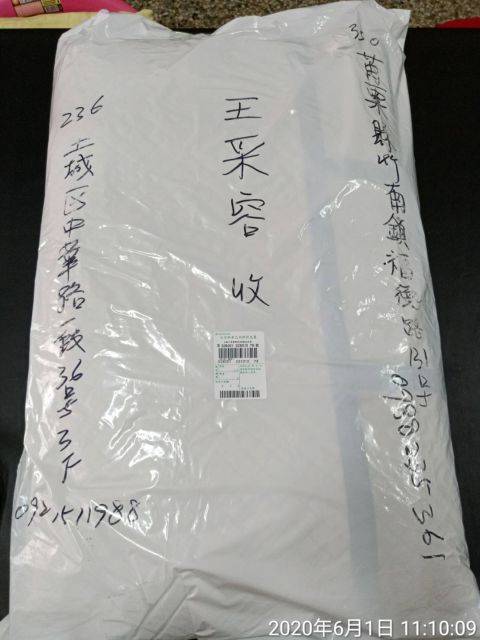 350 苗栗縣竹南鎮福德路131号
0988235361
王采容 收
236 土城區中華路一段36号3F
0921511988
2020年6月1日 11:10:09